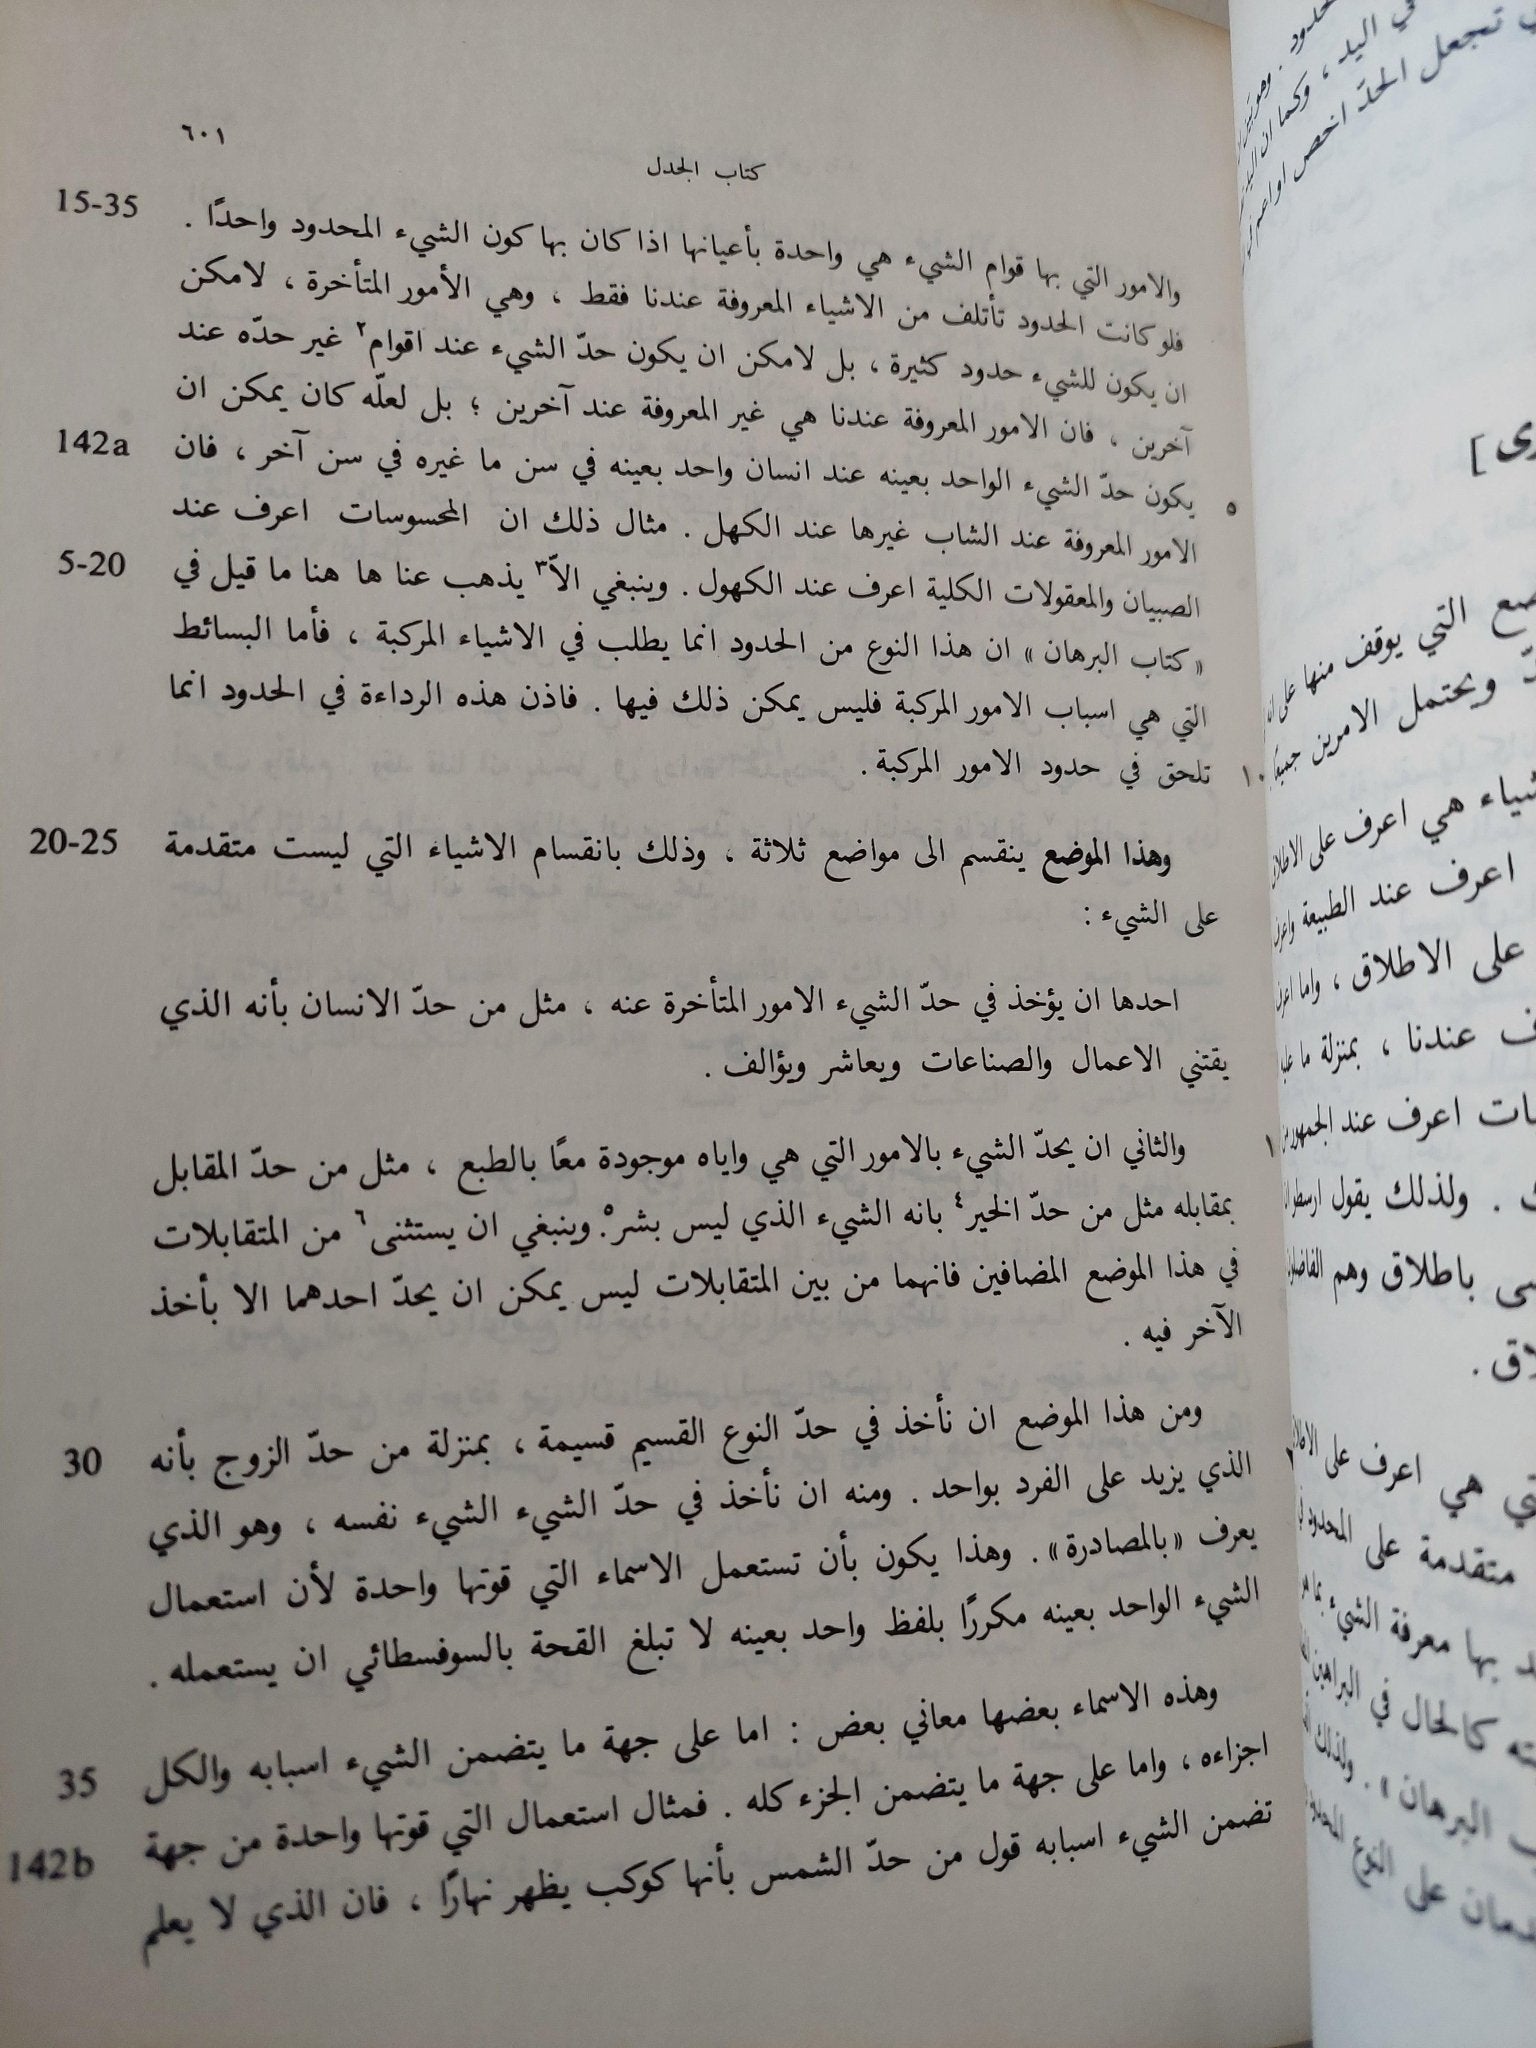 ٦٠١
كتاب الجدل
15-35
والامور التي بها قوام الشيء هي واحدة بأعيانها اذا كان بها كون الشيء المحدود واحدًا .
فلو كانت الحدود تأتلف من الاشياء المعروفة عندنا فقط ، وهي الأمور المتأخرة ، لامكن
ان يكون للشيء حدود كثيرة ، بل لامكن ان يكون حدّ الشيء عند اقوام٢ غير حدّه عند
آخرين ، فان الامور المعروفة عندنا هي غير المعروفة عند آخرين ؛ بل لعلّه كان يمكن ان
142a
يكون حدّ الشيء الواحد بعينه عند انسان واحد بعينه في سن ما غيره في سن آخر ، فان
٥
الامور المعروفة عند الشاب غيرها عند الكهل . مثال ذلك ان المحسوسات اعرف عند
5-20
الصبيان والمعقولات الكلية اعرف عند الكهول . وينبغي الاّ٣ يذهب عنا ها هنا ما قيل في
« كتاب البرهان » ان هذا النوع من الحدود انما يطلب في الاشياء المركبة ، فأما البسائط
التي هي اسباب الامور المركبة فليس يمكن ذلك فيها . فاذن هذه الرداءة في الحدود انما
تلحق في حدود الامور المركبة .
١٠
20-25
وهذا الموضع ينقسم الى مواضع ثلاثة ، وذلك بانقسام الاشياء التي ليست متقدمة
على الشيء :
احدها ان يؤخذ في حدّ الشيء الامور المتأخرة عنه ، مثل من حدّ الانسان بأنه الذي
يقتني الاعمال والصناعات ويعاشر ويؤالف .
والثاني ان يحدّ الشيء بالامور التي هي واياه موجودة معًا بالطبع ، مثل من حدّ المقابل
بمقابله مثل من حدّ الخير٤ بانه الشيء الذي ليس بشر٥. وينبغي ان يستثنى٦ من المتقابلات
في هذا الموضع المضافين فانهما من بين المتقابلات ليس يمكن ان يحدّ احدهما الا بأخذ
الآخر فيه .
ومن هذا الموضع ان نأخذ في حدّ النوع القسيم قسيمة ، بمنزلة من حدّ الزوج بأنه
30
الذي يزيد على الفرد بواحد . ومنه ان نأخذ في حدّ الشيء الشيء نفسه ، وهو الذي
يعرف «بالمصادرة» . وهذا يكون بأن تستعمل الاسماء التي قوتها واحدة لأن استعمال
الشيء الواحد بعينه مكررًا بلفظ واحد بعينه لا تبلغ القحة بالسوفسطائي ان يستعمله .
وهذه الاسماء بعضها معاني بعض : اما على جهة ما يتضمن الشيء اسبابه والكل
35
اجزاءه ، واما على جهة ما يتضمن الجزء كله . فمثال استعمال التي قوتها واحدة من جهة
142b
تضمن الشيء اسبابه قول من حدّ الشمس بأنها كوكب يظهر نهارًا ، فان الذي لا يعلم
في اليد ، وكما ان
تجعل الحدّ اخص او اعم
التي يوقف منها على
ويحتمل الامرين جميعًا
هي اعرف على الاطلاق
اعرف عند الطبيعة
على الاطلاق ، واما
عندنا ، بمنزلة ما
اعرف عند الجمهور
. ولذلك يقول
باطلاق وهم
هي اعرف على
متقدمة على المحدود
بها معرفة الشيء بما هو
كالحال في البراهين
البرهان» . ولذلك
على النوع المحدود